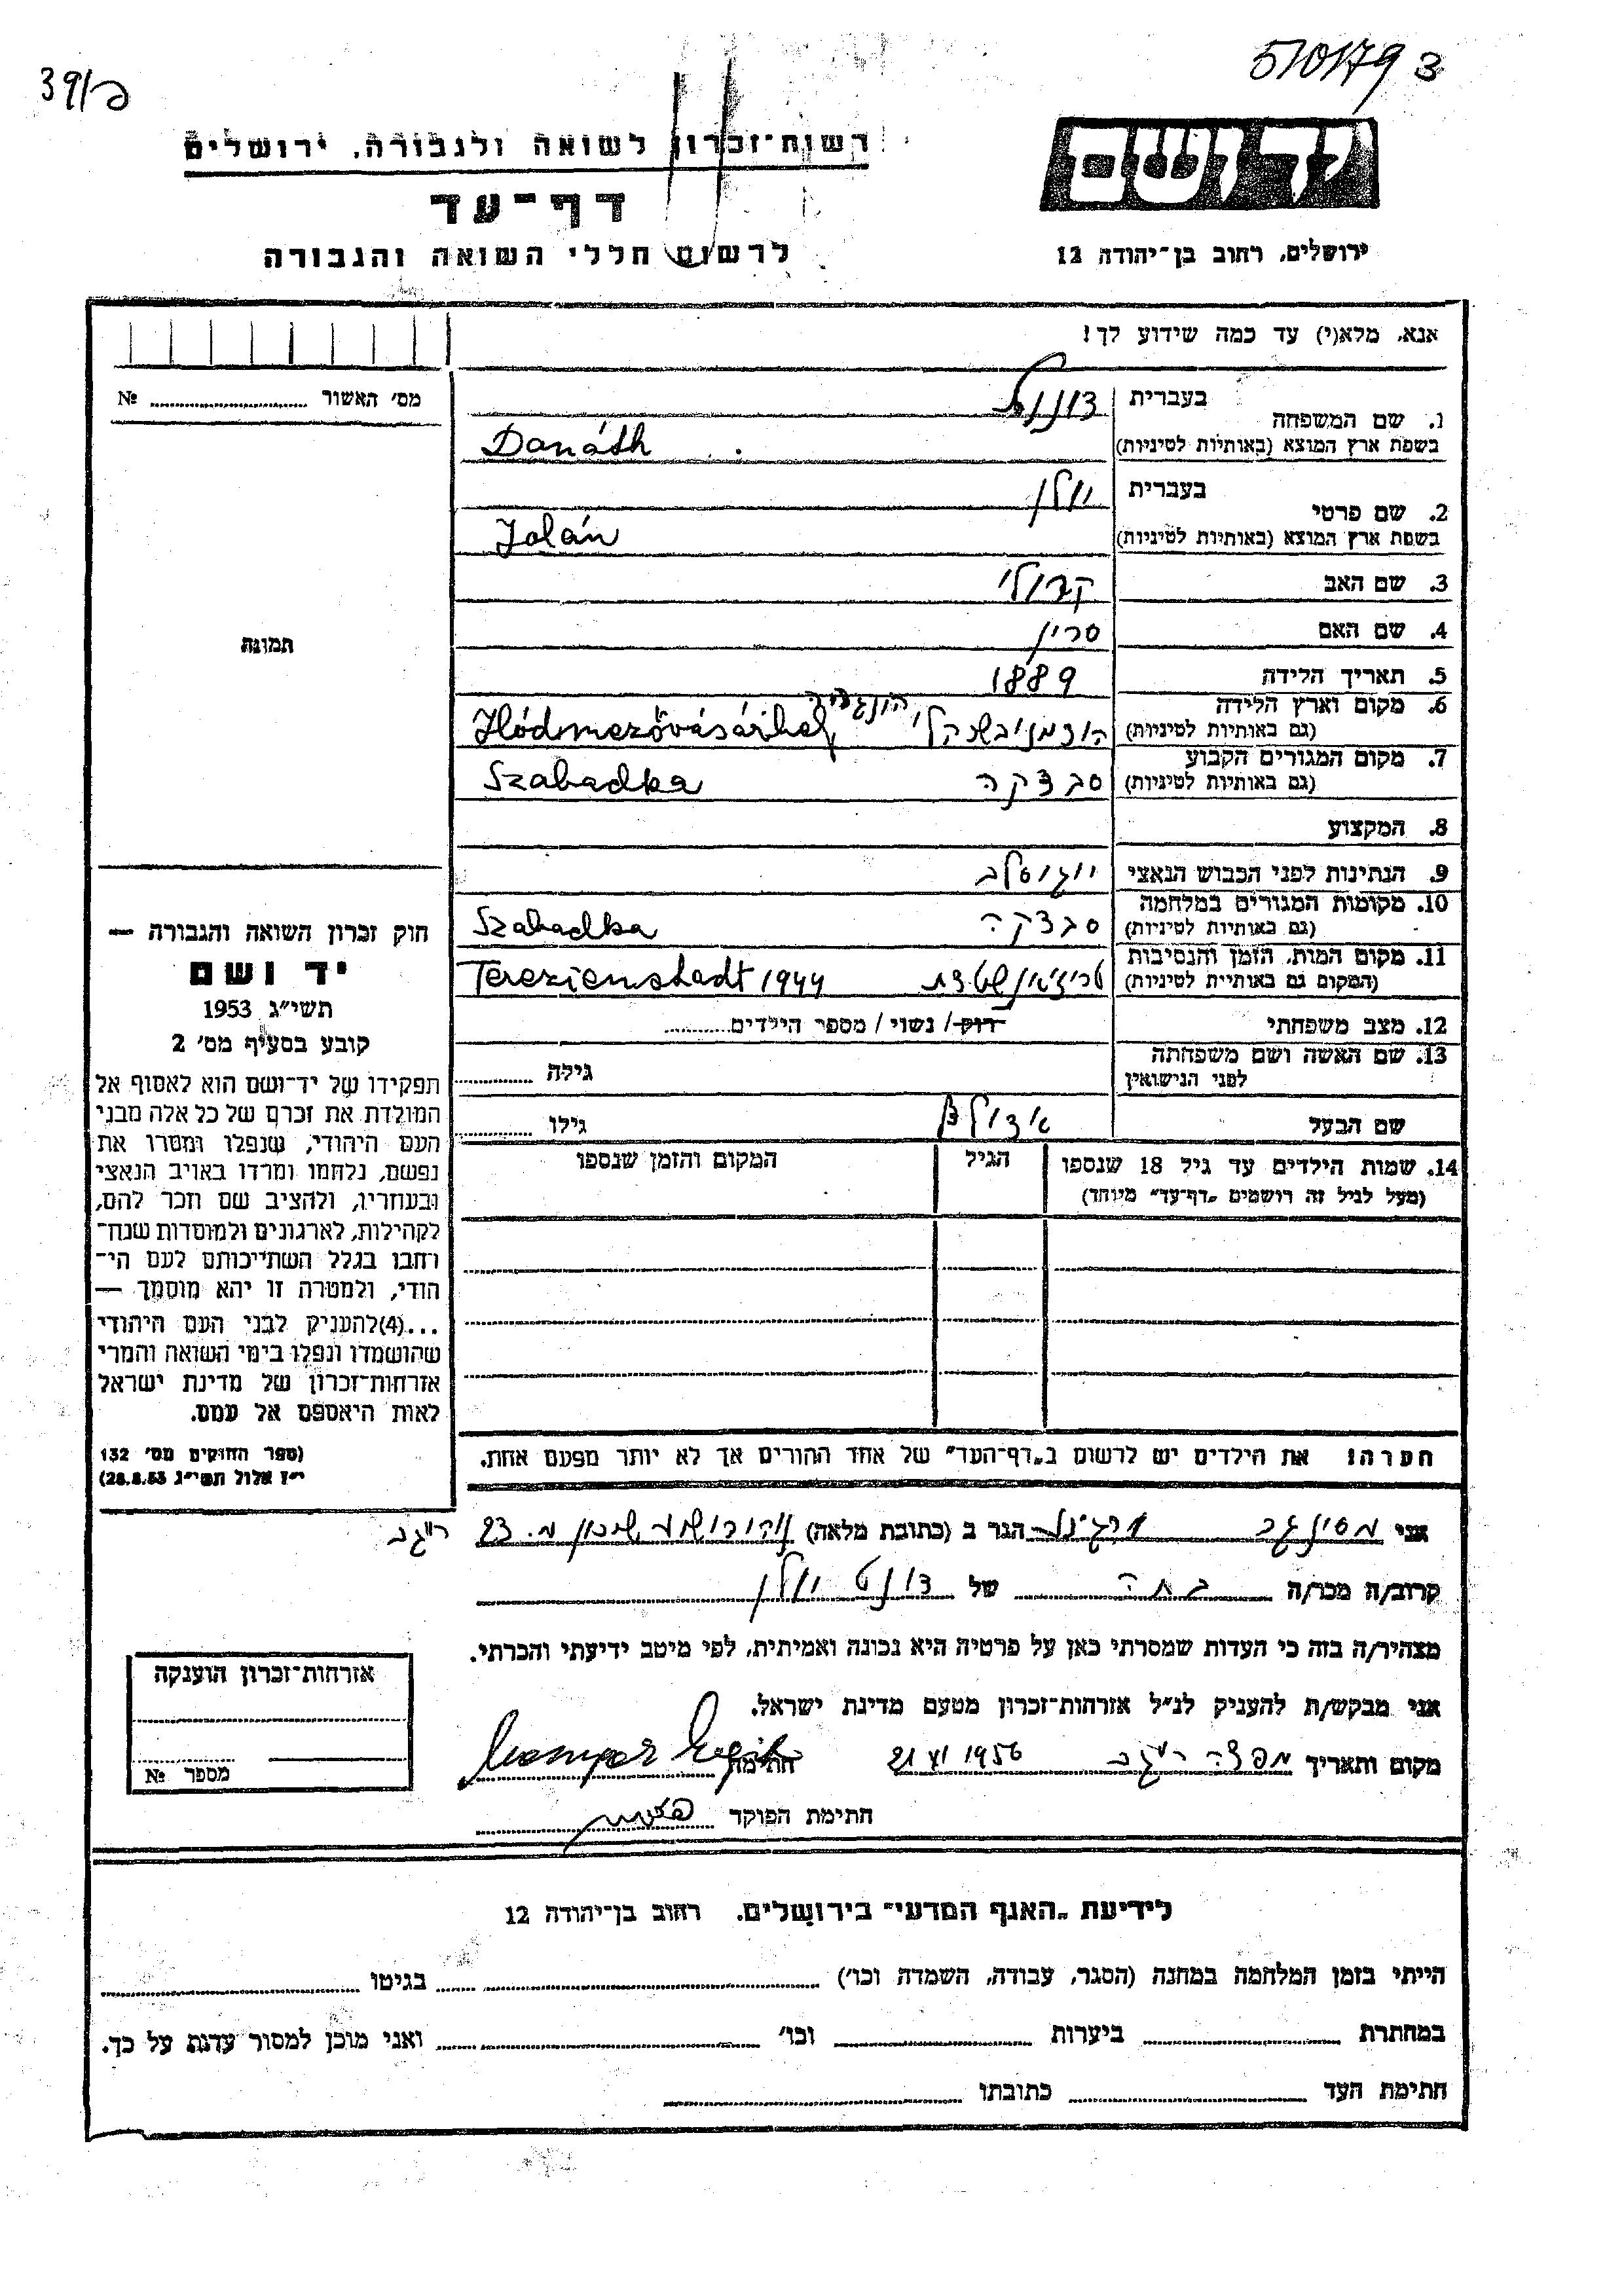 39/פ
5101793
יד ושם
רשות־זכרון לשואה ולגבורה, ירושלים
דף־עד
לרשום חללי השואה והגבורה
ירושלים, רחוב בן־יהודה 12
אנא, מלא(י) עד כמה שידוע לך!
מס' האשור № 
1. שם המשפחה
בעברית דונט
בשפת ארץ המוצא (באותיות לטיניות) Donáth
2. שם פרטי
בעברית יולן
בשפת ארץ המוצא (באותיות לטיניות) Jolán
3. שם האב קרולי
4. שם האם סרין
5. תאריך הלידה 1889
6. מקום וארץ הלידה הונגריה
(גם באותיות לטיניות) Hódmezővásárhely
7. מקום המגורים הקבוע
(גם באותיות לטיניות) סבדקה Szabadka
8. המקצוע
9. הנתינות לפני הכבוש הנאצי יוגוסלב
10. מקומות המגורים במלחמה
(גם באותיות לטיניות) סבדקה Szabadka
11. מקום המות, הזמן והנסיבות
(המקום גם באותיית לטיניות) Terezienstadt 1944
12. מצב משפחתי רוק / נשוי / מספר הילדים
13. שם האשה ושם משפחתה גילה
לפני הנישואין
שם הבעל אדולף גילו
14. שמות הילדים עד גיל 18 שנספו הגיל המקום והזמן שנספו
(מעל לגיל זה רושמים „דף־עד" מיוחד)
הערה! את הילדים יש לרשום ב„דף־העד" של אחד ההורים אך לא יותר מפעם אחת.
תמונה
חוק זכרון השואה והגבורה —
יד ושם
תשי"ג 1953
קובע בסעיף מס' 2
תפקידו של יד־ושם הוא לאסוף אל
המולדת את זכרם של כל אלה מבני
העם היהודי, שנפלו ומסרו את
נפשם, נלחמו ומרדו באויב הנאצי
ובעוזריו, ולהציב שם וזכר להם,
לקהילות, לארגונים ולמוסדות שנח־
רחבו בגלל השתייכותם לעם הי־
הודי, ולמטרה זו יהא מוסמך —
...(4)להעניק לבני העם היהודי
שהושמדו ונפלו בימי השואה והמרי
אזרחות־זכרון של מדינת ישראל
לאות היאספם אל עמם.
(ספר החוקים מס' 132
י"ז אלול תשי"ג 28.8.53)
אני הגר ב (כתובת מלאה) 23
קרוב/ה מכר/ה של דונט יולן
מצהיר/ה בזה כי העדות שמסרתי כאן על פרטיה היא נכונה ואמיתית, לפי מיטב ידיעתי והכרתי.
אני מבקש/ת להעניק לנ"ל אזרחות־זכרון מטעם מדינת ישראל.
מקום ותאריך 21 XI 1956 חתימה
חתימת הפוקד
אזרחות־זכרון הוענקה
מספר №
לידיעת „האגף המדעי" בירושלים. רחוב בן־יהודה 12
הייתי בזמן המלחמה במחנה (הסגר, עבודה, השמדה וכו') בגיטו
במחתרת ביערות וכו' ואני מוכן למסור עדות על כך.
חתימת העד כתובתו